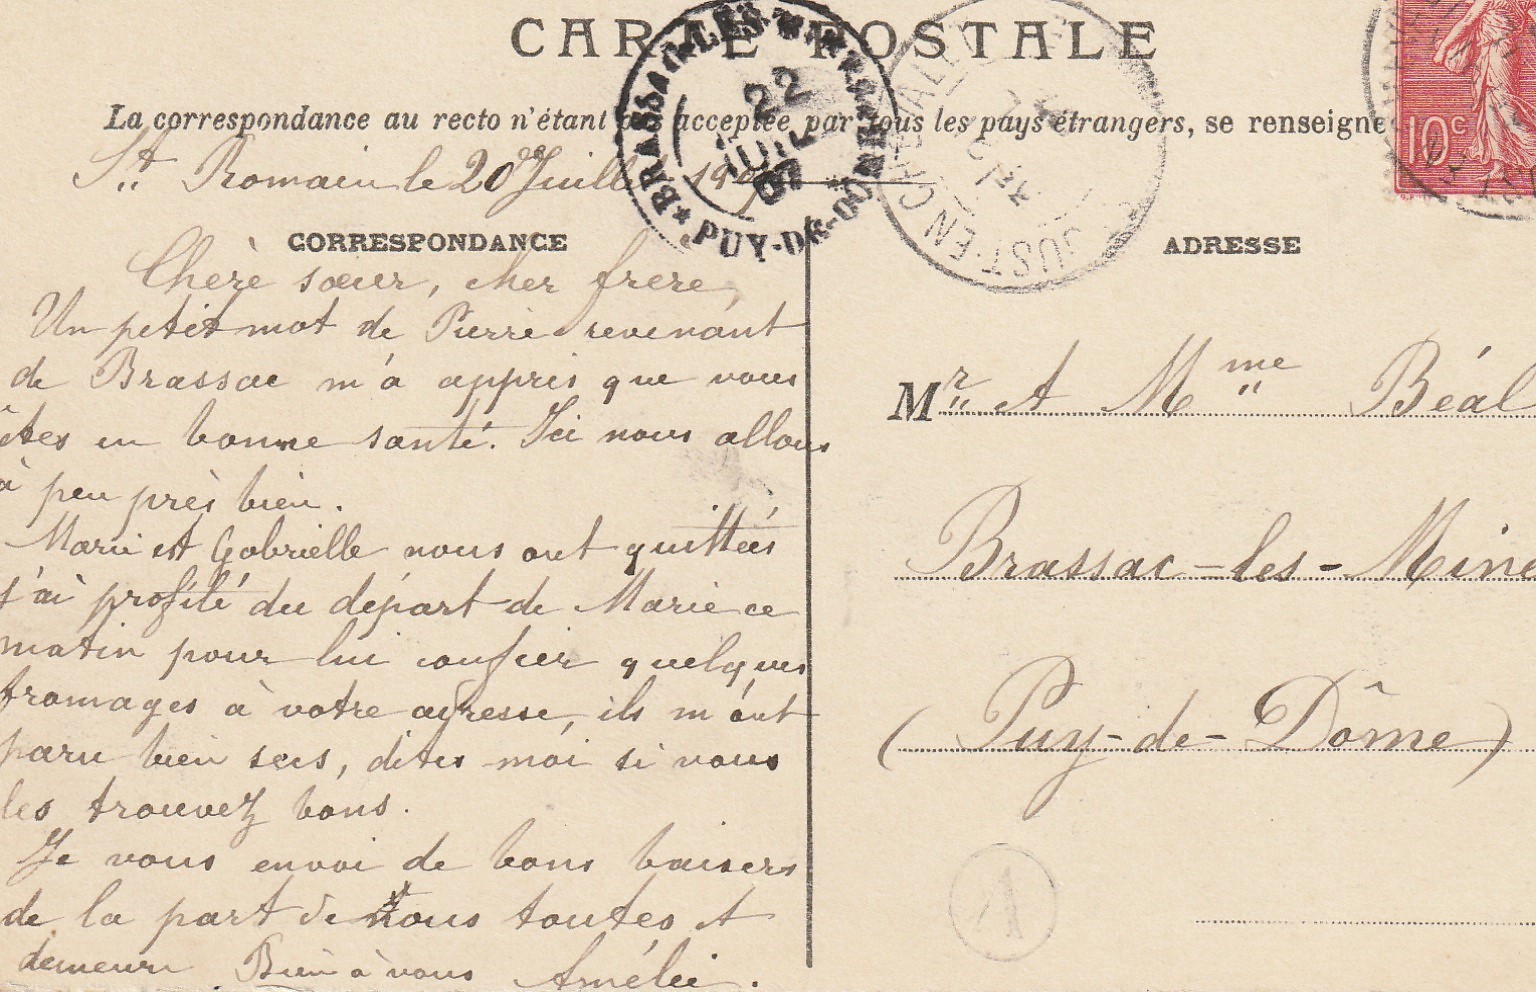 CARTE POSTALE
La correspondance au recto n'étant pas acceptée par tous les pays étrangers, se renseigne
St Romain le 20 Juillet 1907
BRASSAC-LES-MINES
22
JUIL
07
PUY-DE-DOME
ST JUST-EN-CHEVALET
10c
CORRESPONDANCE
Chère sœur, cher frère,
Un petit mot de Pierre revenant
de Brassac m'a appris que vous
êtes en bonne santé. Ici nous allons
à peu près bien.
Marie et Gabrielle nous ont quittées
j'ai profité du départ de Marie ce
matin pour lui confier quelques
fromages à votre adresse, ils m'ont
paru bien secs, dites moi si vous
les trouvez bons.
Je vous envoi de bons baisers
de la part de nous toutes et
demeure Bien à vous Amélie.
ADRESSE
Mr et Mme Béal
Brassac-les-Mine
(Puy-de-Dôme)